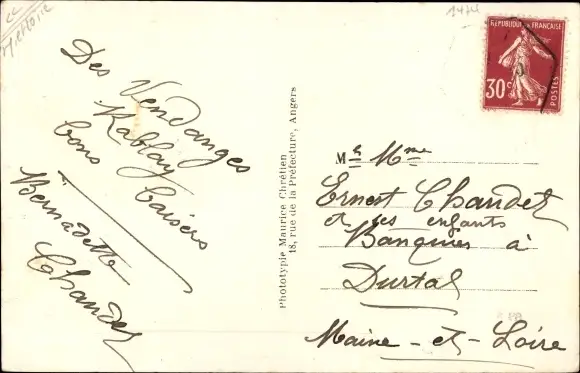 Des Vendanges
Rablay
bons baisers
Bernadette
Chandet
Phototypie Maurice Chrétien
18, rue de la Préfecture, Angers
RÉPUBLIQUE FRANÇAISE
30c
POSTES
Mr Mme
Ernest Chandet
et ses enfants
Banquier à
Durtal
Maine-et-Loire